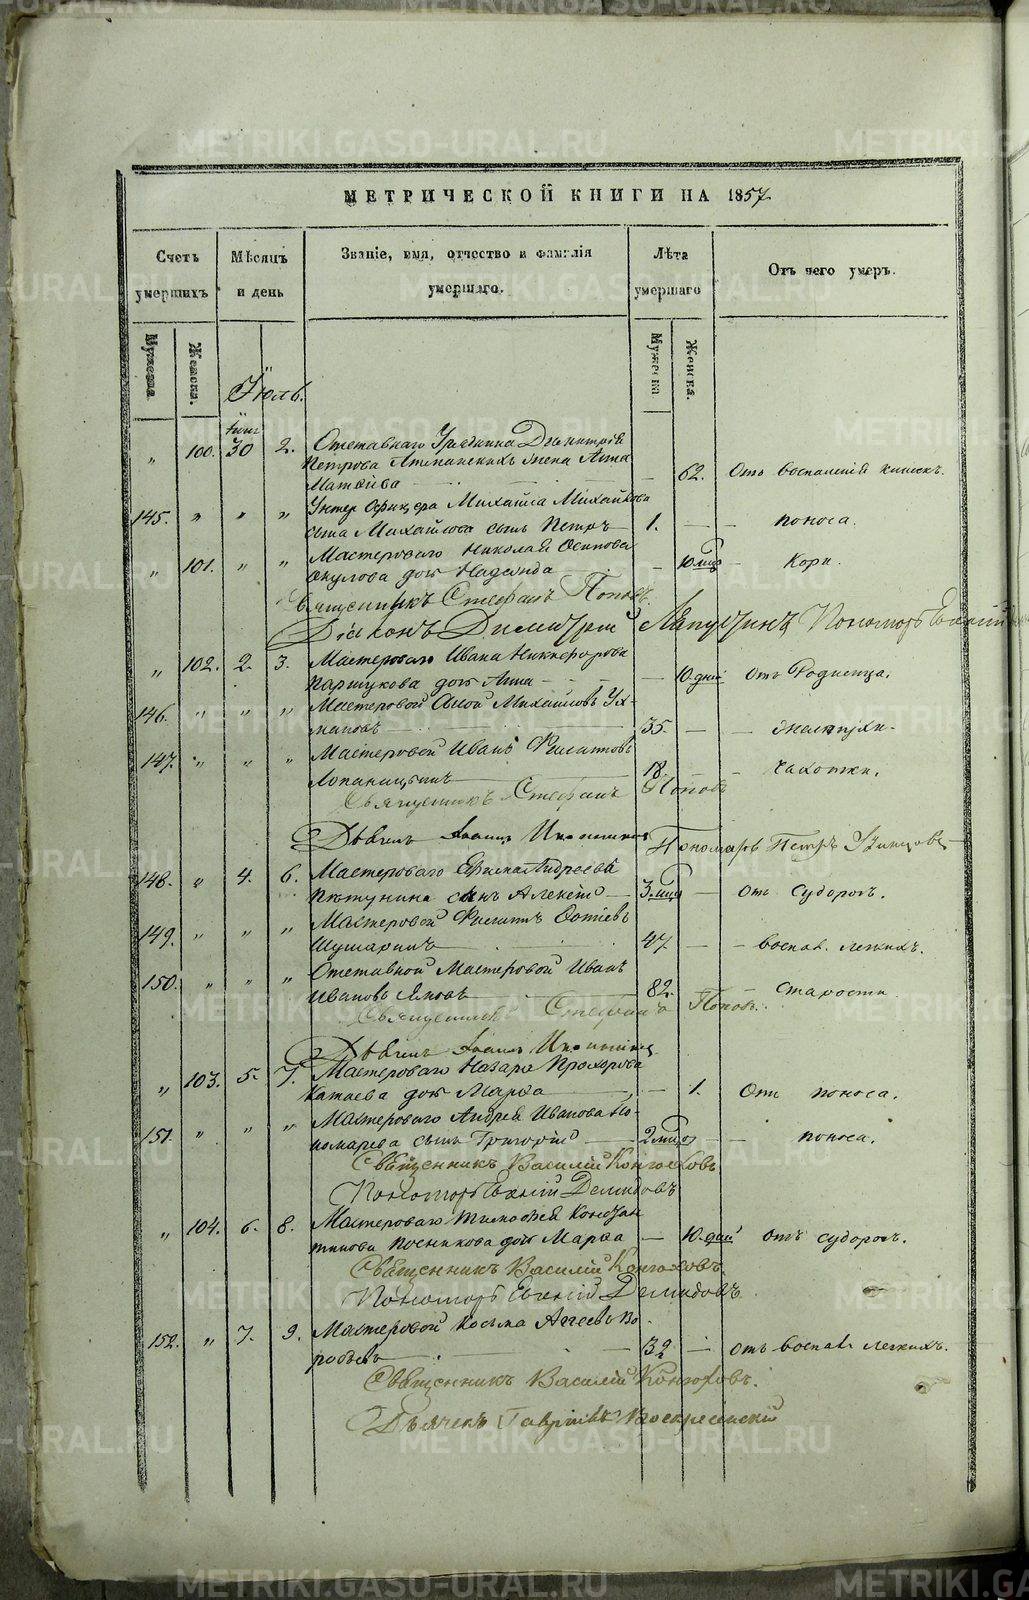 МЕТРИЧЕСКОЙ КНИГИ НА 1857
Счетъ умершихъ
Мѣсяцъ и день
Званіе, имя, отчество и фамилія умершаго.
Лѣта умершаго
Отъ чего умеръ.
Мужеска. Женска.
Мужеска Женска.
Іюль.
Іюня
„ 100. 30 2. Отставнаго Урядника Димитрія
Петрова жена Анна
Матвѣева — 62. Отъ воспаленія кишекъ.
145. „ „ „ Унтер Офицера Михаила Михайлова
сына Михайлова сынъ Петръ 1. — — поноса.
„ 101. „ „ Мастероваго Николая Осипова
Окулова дочь Надежда — 10 мцъ — Кори.
Священникъ Стефанъ Поповъ.
Діаконъ Димитрій Лапухинъ Пономарь Евгеній
„ 102. 2. 3. Мастероваго Ивана Никифорова
Паршукова дочь Анна — 10 дней Отъ Родимца.
146. „ „ „ Мастеровой Михайловъ
35. — —
147. „ „ „ Мастеровой Иванъ Филатовъ
Лопаницынъ 18. — чахотки.
Священникъ Стефанъ Поповъ
Дьячекъ Іоаннъ Пономарь Петръ
148. „ 4. 6. Мастероваго Андреева
Пѣтунина сынъ Алексій 3 мцъ — отъ судорогъ.
149. „ „ „ Мастеровой Филатъ Фотіевъ
Шушаринъ 47 — — воспал. легкихъ.
150. „ „ „ Отставной Мастеровой Иванъ
Ивановъ 82. старости
Священникъ Стефанъ Поповъ.
Дьячекъ Іоаннъ
„ 103. 5. 7. Мастероваго Назара Прохорова
Катаева дочь Марѳа — 1. Отъ поноса.
151. „ „ „ Мастероваго Андрея Иванова По-
номарева сынъ Григорій 2 мцъ — — поноса.
Священникъ Василій Конюховъ
Пономарь Евгеній Демидовъ
„ 104. 6. 8. Мастероваго Тимофея Констан
тинова Посникова дочь Марѳа — 10 дней отъ судорогъ.
Священникъ Василій Конюховъ.
Пономарь Евгеній Демидовъ
152. „ 7. 9. Мастеровой Косьма Аггеевъ Во-
робьевъ 32 — отъ воспал. легкихъ.
Священникъ Василій Конюховъ.
Дьячекъ Гавріилъ Воскресенскій